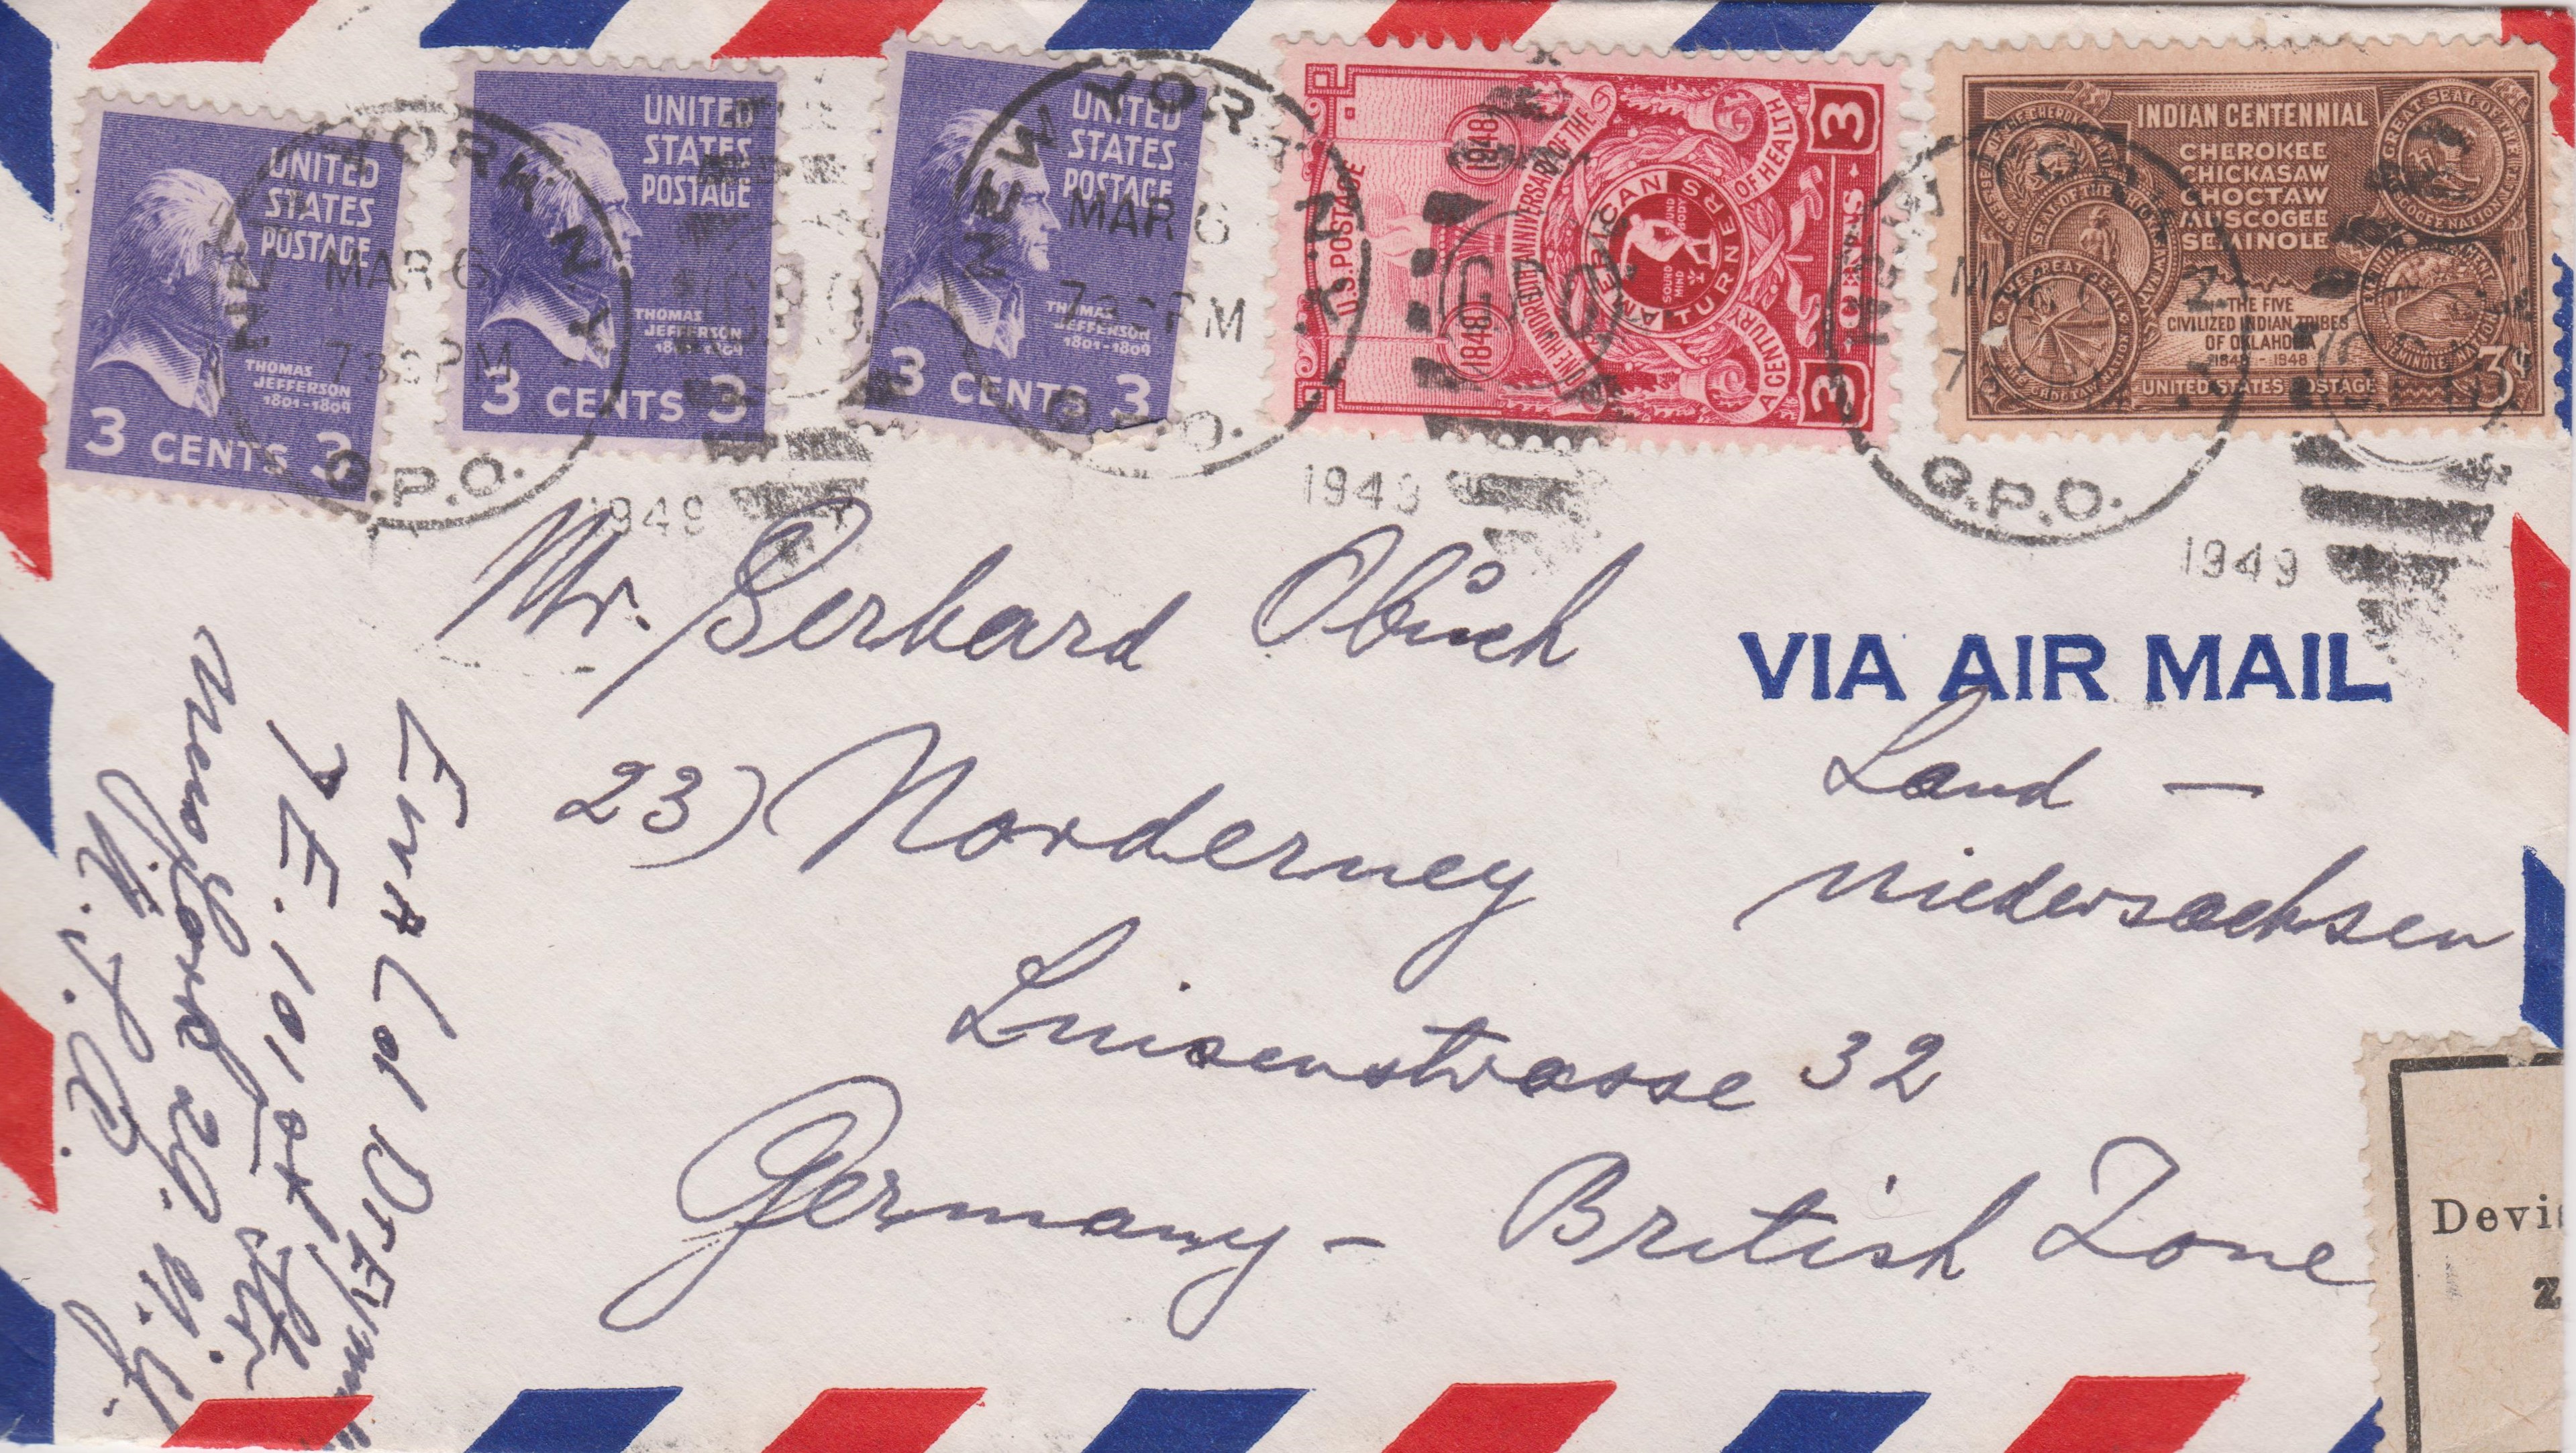 UNITED
STATES
POSTAGE
THOMAS
JEFFERSON
1801-1809
3 CENTS 3
UNITED
STATES
POSTAGE
THOMAS
JEFFERSON
1801-1809
3 CENTS 3
UNITED
STATES
POSTAGE
THOMAS
JEFFERSON
1801-1809
3 CENTS 3
U.S. POSTAGE
1848 1948
ONE HUNDREDTH ANNIVERSARY OF THE
AMERICAN TURNERS
SOUND MIND SOUND BODY
A CENTURY OF HEALTH
3 CENTS 3
INDIAN CENTENNIAL
CHEROKEE
CHICKASAW
CHOCTAW
MUSCOGEE
SEMINOLE
THE FIVE
CIVILIZED INDIAN TRIBES
OF OKLAHOMA
1848 - 1948
UNITED STATES POSTAGE 3¢
GREAT SEAL OF THE MUSCOGEE NATION
NEW YORK, N.Y.
MAR 6
7 30 PM
G.P.O.
1949
NEW YORK, N.Y.
MAR 6
7 30 PM
G.P.O.
1949
NEW YORK, N.Y.
G.P.O.
1949
Mr. Gerhard Obuch
VIA AIR MAIL
23) Norderney
Land -
Niedersachsen
Luisenstrasse 32
Germany - British Zone
7 E. 101st Str
New York 29. N.Y.
Devi
Z